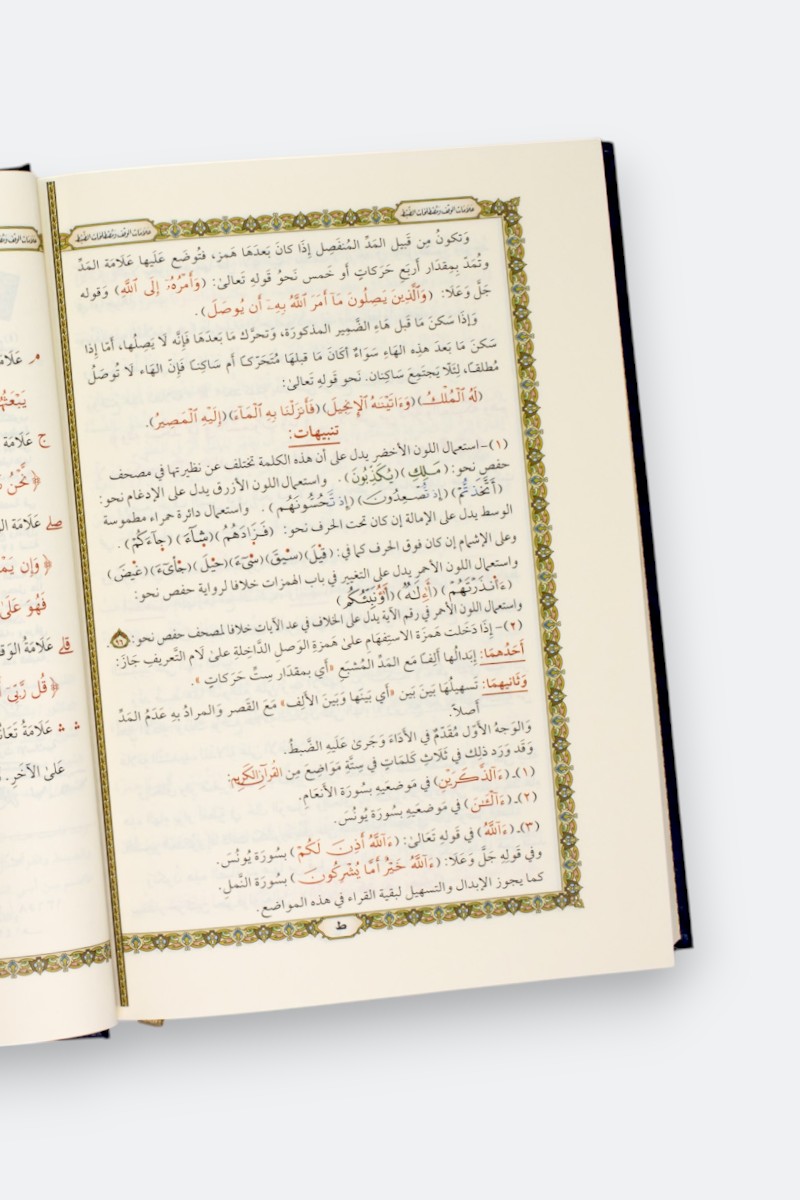 علامات الوقف ومصطلحات الضبط
علامات الوقف ومصطلحات الضبط
وَتكونُ مِن قَبيل المَدِّ المُنفَصِل إِذَا كانَ بَعدَهَا هَمز، فتُوضَع عَلَيها عَلَامَة المَدِّ
وتُمَدّ بِمِقدَار أَربَع حَرَكاتٍ أَو خَمس نَحوُ قَولهِ تَعالىٰ: (وَأَمۡرُهُۥٓ إِلَى ٱللَّهِ) وَقوله
جَلَّ وَعَلَا: (وَٱلَّذِينَ يَصِلُونَ مَآ أَمَرَ ٱللَّهُ بِهِۦٓ أَن يُوصَلَ).
وَإِذَا سَكنَ مَا قَبل هَاءِ الضَّمِير المذكورَة، وَتحرَّك مَا بَعدَهَا فَإِنَّه لَا يَصِلُها، أمّا إِذا
سَكنَ مَا بَعدَ هذِه الهَاءِ سَوَاءٌ أكَانَ مَا قبلهَا مُتَحَرّكًا أَم سَاكِنًا فَإِنّ الهَاء لَا تُوصَلُ
مُطلقًا، لِئَلَّا يَجتَمِعَ سَاكِنان. نَحو قَولهِ تَعالىٰ:
(لَهُ ٱلۡمُلۡكُ) (وَءَاتَيۡنَٰهُ ٱلۡإِنجِيلَ) (فَأَنزَلۡنَا بِهِ ٱلۡمَآءَ) (إِلَيۡهِ ٱلۡمَصِيرُ).
تنبيهات:
(١)- استعمال اللون الأخضر يدل على أن هذه الكلمة تختلف عن نظيرتها في مصحف
حفص نحو: (مَلِكِ) (يُكَذِّبُونَ). واستعمال اللون الأزرق يدل على الإدغام نحو:
(أَتَّخَذتُّمۡ) (إِذ تُّصۡعِدُونَ) (إِذ تَّحُسُّونَهُم). واستعمال دائرة حمراء مطموسة
الوسط يدل على الإمالة إن كان تحت الحرف نحو: (فَزَادَهُمُ) (شَآءَ) (جَآءَكُمۡ).
وعلى الإشمام إن كان فوق الحرف كما في: (قِيلَ) (سِيقَ) (سِيٓءَ) (حِيلَ) (جِاْيٓءَ) (غِيضَ)
واستعمال اللون الأحمر يدل على التغيير في باب الهمزات خلافا لرواية حفص نحو:
(ءَأَنذَرۡتَهُمۡ) (أَءِلَٰهٌ) (أَؤُنَبِّئُكُم)
واستعمال اللون الأحمر في رقم الآية يدل على الخلاف في عد الآيات خلافا لمصحف حفص نحو:
(٢)- إِذَا دَخَلت هَمزَة الاستِفهَامِ علىٰ هَمزةِ الوَصلِ الدَّاخِلةِ علىٰ لَام التَّعريفِ جَازَ:
أَحَدُهمَا: إِبدَالُها أَلِفًا مَع المَدِّ المُشبَعِ «أَي بمقدَار سِتِّ حَرَكاتٍ».
وَثَانيهمَا: تَسهيلُهَا بَينَ بَين «أَي بَينَها وَبَينَ الأَلِف» مَعَ القَصر وَالمرادُ بهِ عَدَمُ المَدِّ
أَصلاً.
وَالوَجهُ الأَوَّل مُقَدَّمٌ في الأَدَاءِ وَجَرىٰ عَلَيهِ الضَّبطُ.
وَقَد وَرَد ذلِك في ثَلَاثِ كَلمَاتٍ في سِتَّةِ مَوَاضِعَ مِن القُرآنِ الكَرِيمِ:
(١)- (ءَآلذَّكَرَيۡنِ) في مَوضِعَيهِ بِسُورَة الأَنعَامِ.
(٢)- (ءَآلۡـَٰٔنَ) في مَوضعَيهِ بسُورَة يُونُسَ.
(٣)- (ءَآللَّهُ) في قَولهِ تَعَالىٰ: (ءَآللَّهُ أَذِنَ لَكُمۡ) بسُورَة يُونُسَ.
وفي قَولِهِ جَلَّ وَعَلَا: (ءَآللَّهُ خَيۡرٌ أَمَّا يُشۡرِكُونَ) بسُورَة النَّملِ.
كما يجوز الإبدال والتسهيل لبقية القراء في هذه المواضع.
ط
م عَلَامَة
ج عَلَامَة
صلے عَلَامَة
﴿وَإِن
فَهُوَ عَلَىٰ
قلے عَلَامَةُ الوَقف
﴿قُل رَّبِّيٓ
عَلَامَةُ تَعَانُق
عَلىٰ الآخَرِ.